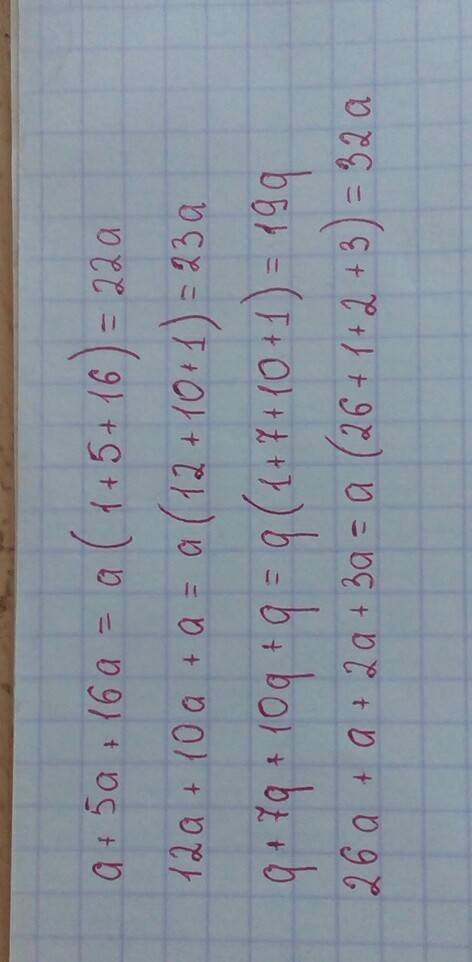 a + 5a + 16a = a (1 + 5 + 16) = 22a
12a + 10a + a = a (12 + 10 + 1) = 23a
q + 7q + 10q + q = q (1 + 7 + 10 + 1) = 19q
26a + a + 2a + 3a = a (26 + 1 + 2 + 3) = 32a